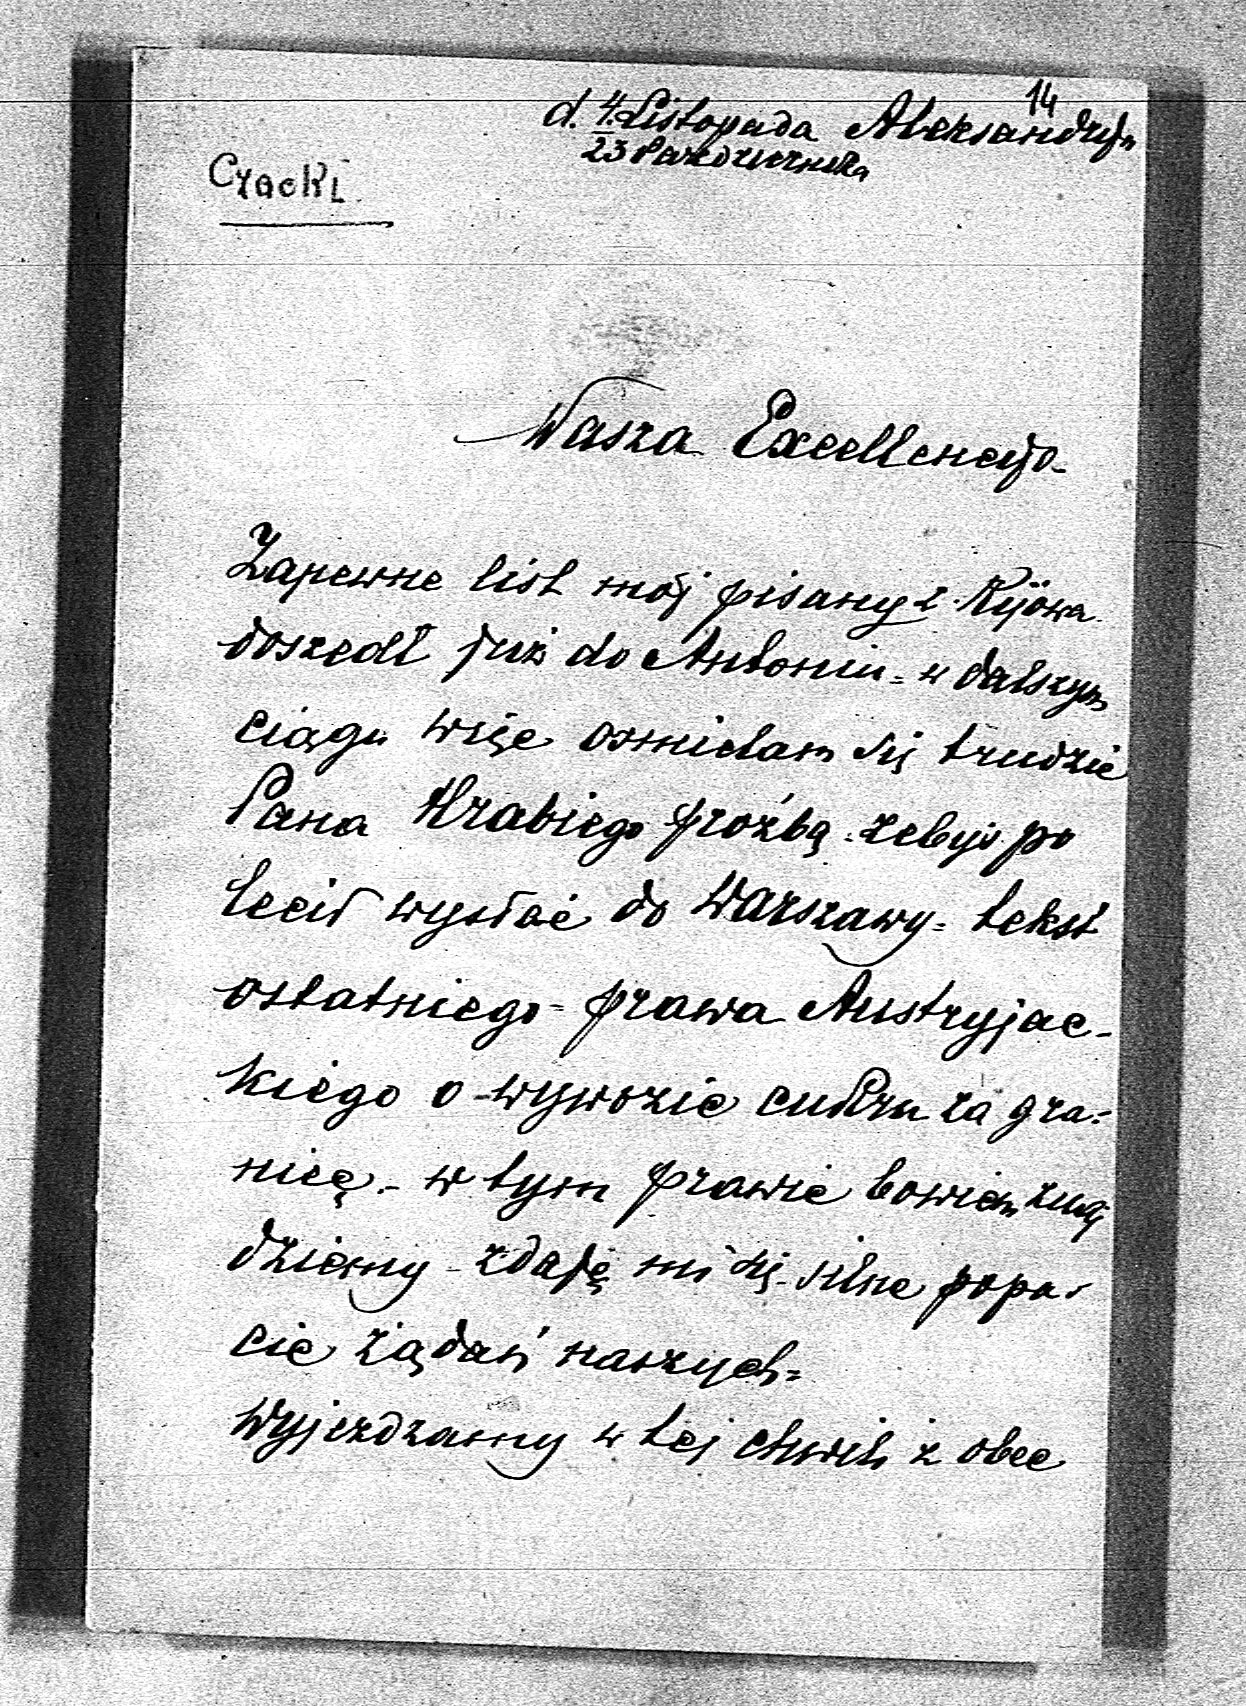 14
d. 4. Listopada Aleksandryn
23 Października
Czacki
Wasza Excellencyo
Zapewne list mój pisany z Kijowa
doszedł już do Antonin = w dalszym
ciągu więc osmielam się trudzic
Pana Hrabiego proźbą żebyś po
lecił wysłać do Warszawy = tekst
ostatniego = prawa Austryjac-
kiego o wywozie cukru za gra=
nicę - w tym prawie bowiem znaj
dziemy - zdaję mi się silne popar
cie żądań naszych =
Wyjezdzamy w tej chwili z obec